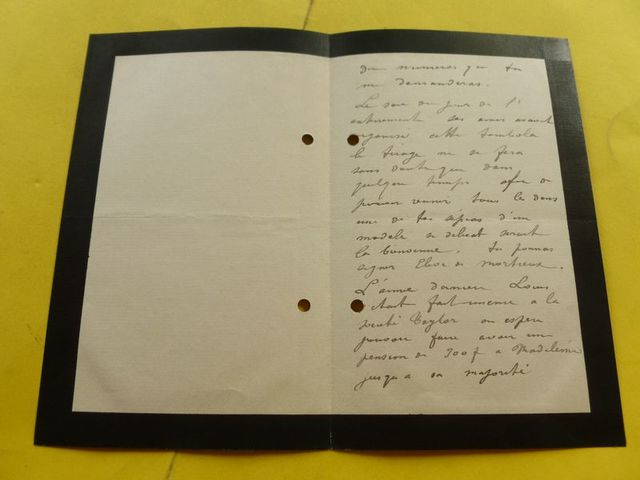 des numeros que tu
me demanderas.
Le soir du jour de l'
enterrement ses amis avaient
organisé cette tombola
le tirage ne se fera
sans doute que dans
quelque temps afin de
pouvoir réunir tous les dons
une de tes copies d'un
modèle si delicat serait
la bienvenue. tu pourras
signer Elise de Mortreux.
L'année dernière Louis
s'était fait inscrire a la
société Taylor on espère
pouvoir faire avoir une
pension de 300f a Madeleine
jusqu'a sa majorité